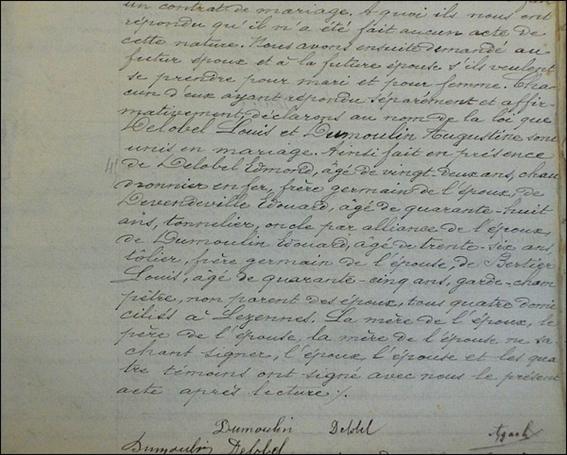 un contrat de mariage. A quoi ils nous ont
répondu qu'il n'a été fait aucun acte de
cette nature. Nous avons ensuite demandé au
futur époux et à la future épouse s'ils veulent
se prendre pour mari et pour femme. Cha-
cun d'eux ayant répondu séparément et affir-
mativement, déclarons au nom de la loi que
Delobel Louis et Dumoulin Augustine sont
unis en mariage. Ainsi fait en présence
de Delobel Edmond, âgé de vingt deux ans, chau
dronnier en fer, frère germain de l'époux, de
Devendeville Edouard, âgé de quarante-huit
ans, tonnelier, oncle par alliance de l'époux,
de Dumoulin Edouard, âgé de trente-six ans
tôlier, frère germain de l'épouse, de Bertier
Louis, âgé de quarante-cinq ans, garde-cham
pêtre, non parent des époux, tous quatre domi
ciliés à Lezennes. La mère de l'époux, le
père de l'épouse, la mère de l'épouse ne sa
chant signer, l'époux, l'épouse et les qua
tre témoins ont signé avec nous le présent
acte après lecture /.
Dumoulin Delobel
Dumoulin Delobel